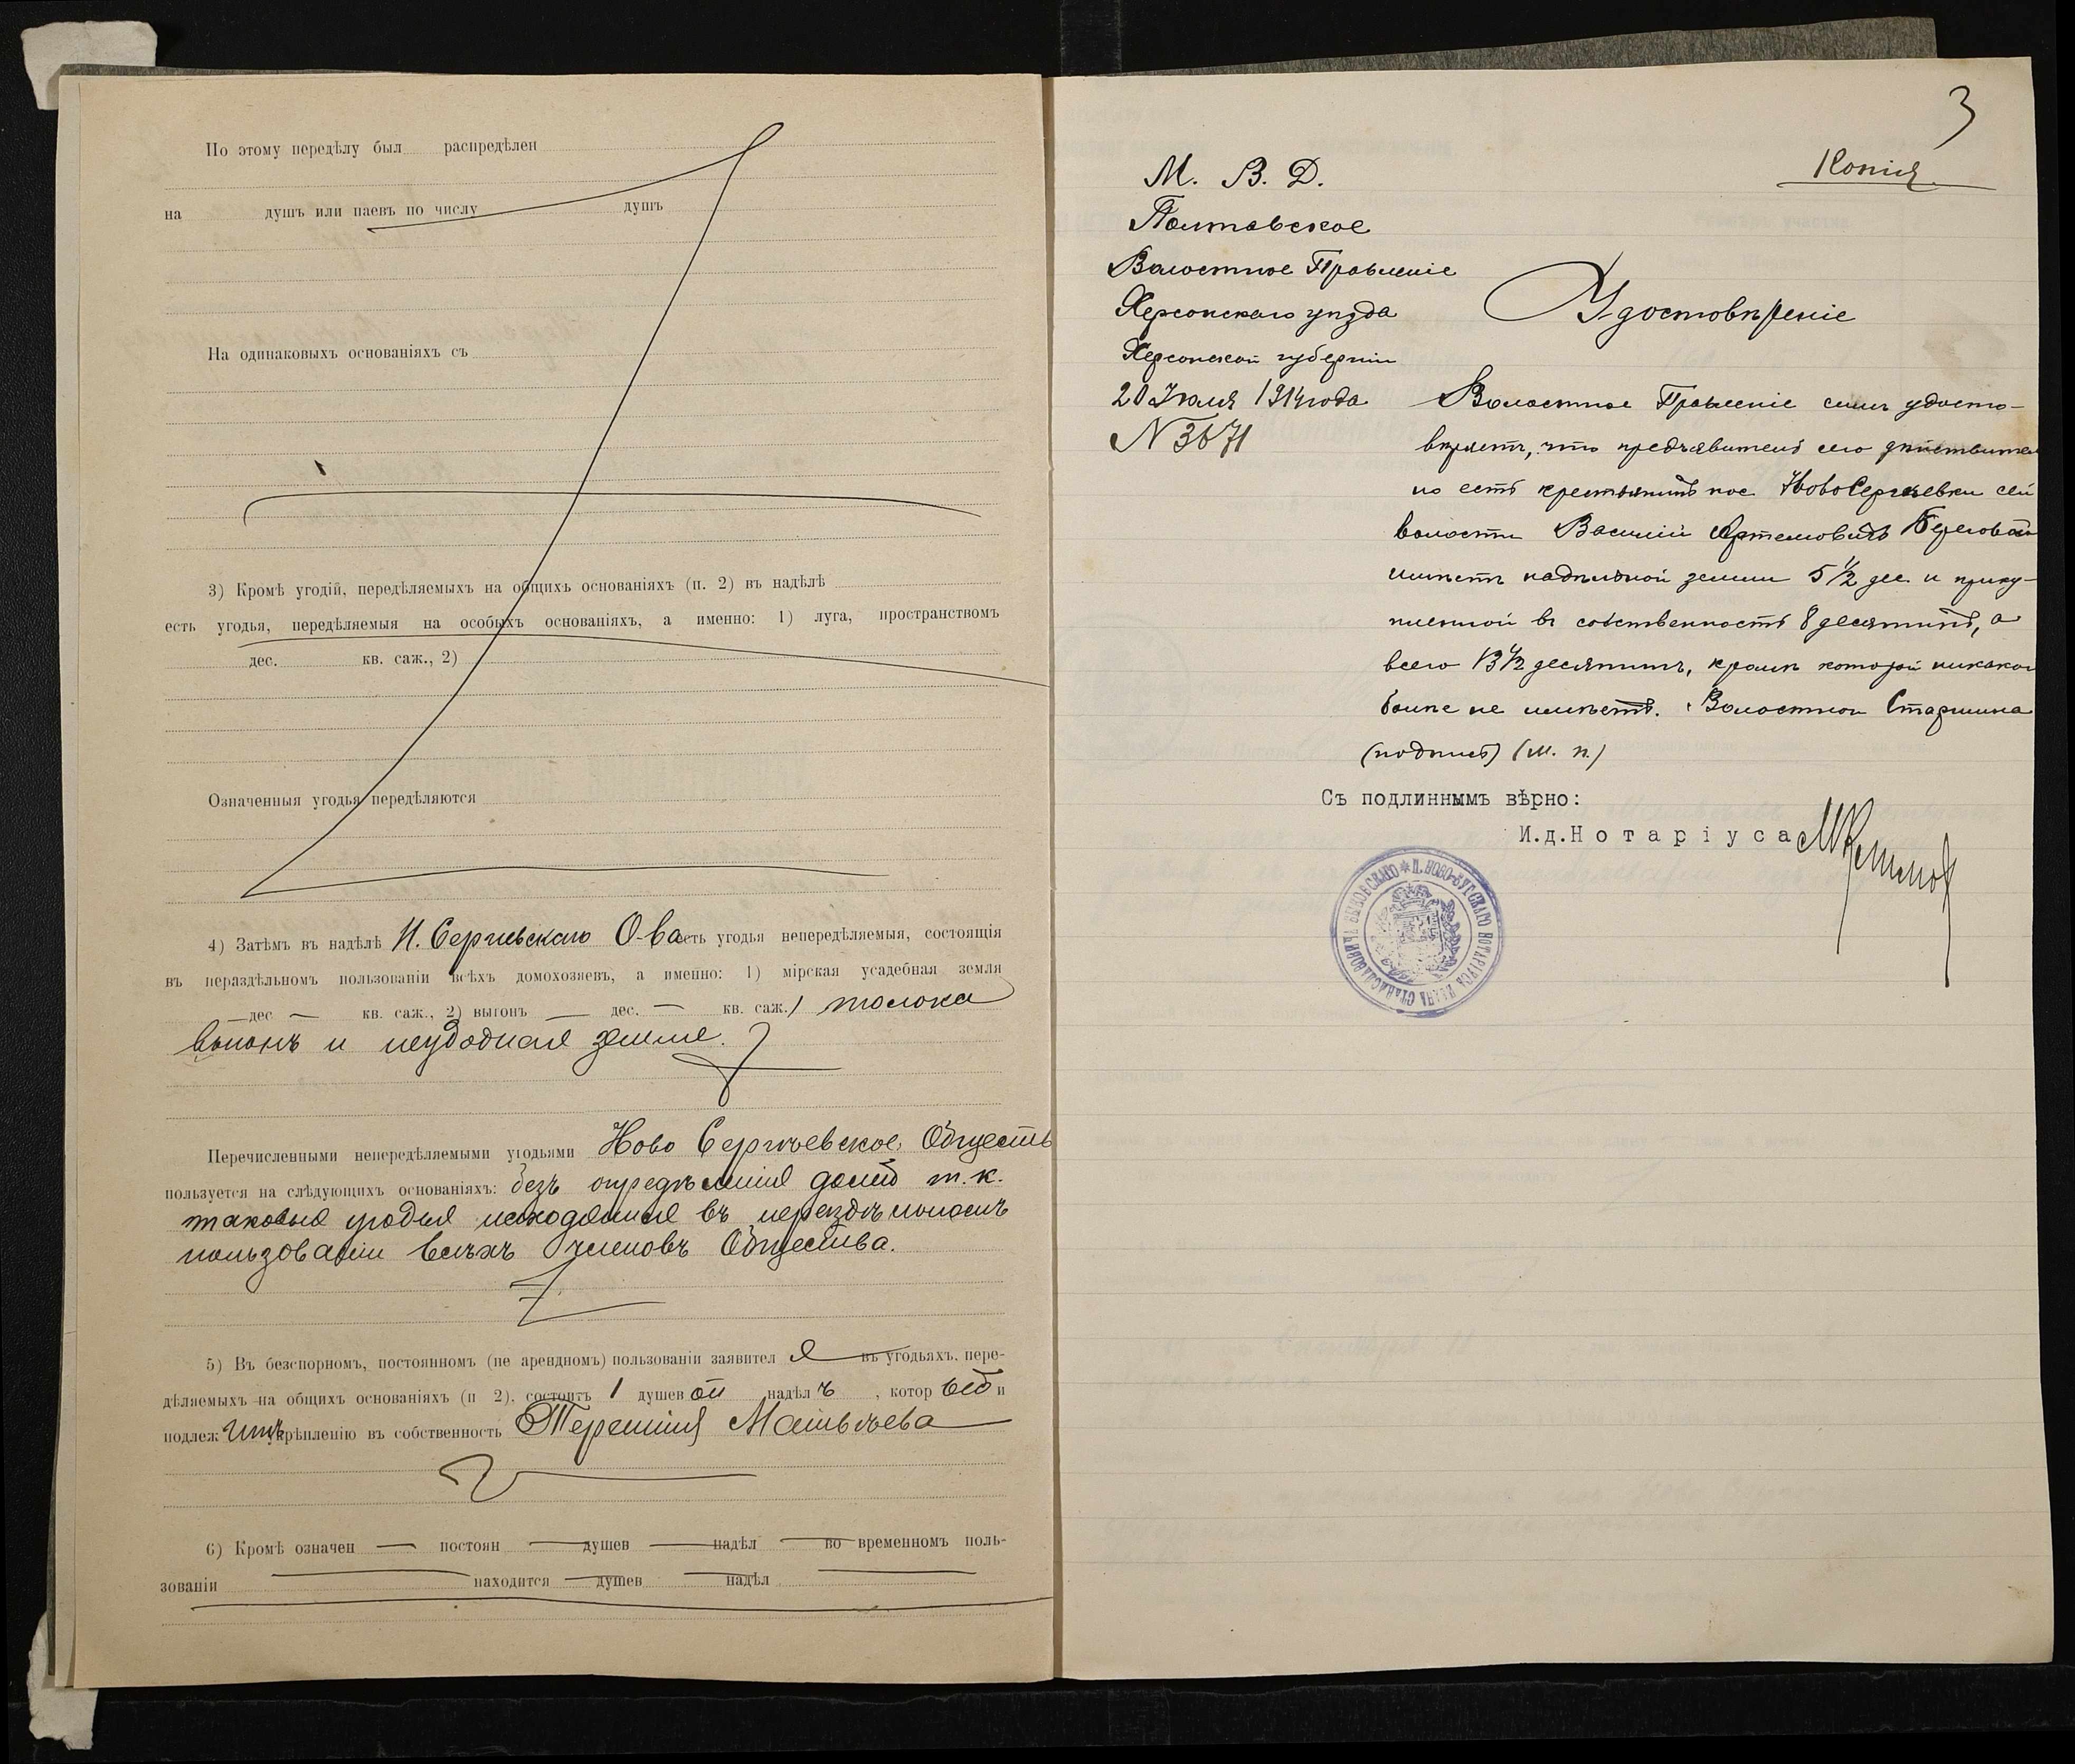 По этому передѣлу был распредѣлен
на душъ или паевъ по числу душъ
На одинаковыхъ основаніяхъ съ
3) Кромѣ угодій, передѣляемыхъ на общихъ основаніяхъ (п. 2) въ надѣлѣ
есть угодья, передѣляемыя на особыхъ основаніяхъ, а именно: 1) луга, пространствомъ
дес. кв. саж., 2)
Означенныя угодья передѣляются
4) Затѣмъ въ надѣлѣ Н. Сергѣевскаго О-ва есть угодья непередѣляемыя, состоящія
въ нераздѣльномъ пользованіи всѣхъ домохозяевъ, а именно: 1) мірская усадебная земля
— дес. — кв. саж., 2) выгонъ — дес. — кв. саж.) толока
выгонъ и неудобная земля.
Перечисленными непередѣляемыми угодьями Ново Сергѣевское Обществ
пользуется на слѣдующихъ основаніяхъ: безъ опредѣленія долей т.к.
таковыя угодья находятся въ нераздѣльномъ
пользованіи всѣхъ членовъ Общества.
5) Въ безспорномъ, постоянномъ (не арендномъ) пользованіи заявител я въ угодьяхъ, пере-
дѣляемыхъ на общихъ основаніяхъ (п 2), состоитъ 1 душев ой надѣл ъ , котор ый и
подлеж итъ укрѣпленію въ собственность Терентія Матвѣева
6) Кромѣ означен — постоян — душев — надѣл — во временномъ поль-
зованіи — находится — душев — надѣл —
3
Копія.
М. В. Д.
Полтавское
Волостное Правленіе
Херсонскаго уѣзда
Херсонской губерніи
20 Іюля 1914 года
N 3671
Удостовѣреніе
Волостное Правленіе симъ удосто-
вѣряетъ, что предъявитель сего дѣйствител
но есть крестьянинъ пос. НовоСергѣевки сей
волости Василій Артемовичъ Береговой
имѣетъ надѣльной земли 5 1/2 дес. и прику-
пленной въ собственность 8 десятинъ, а
всего 13 1/2 десятинъ, кромѣ которой никакой
болѣе не имѣетъ. Волостной Старшина
(подпись) (М. п.)
Съ подлиннымъ вѣрно:
И.д.Нотаріуса
П. НОВО-БУГСКАГО НОТАРІУСА ИВАНЪ СТАНИСЛАВОВИЧЪ